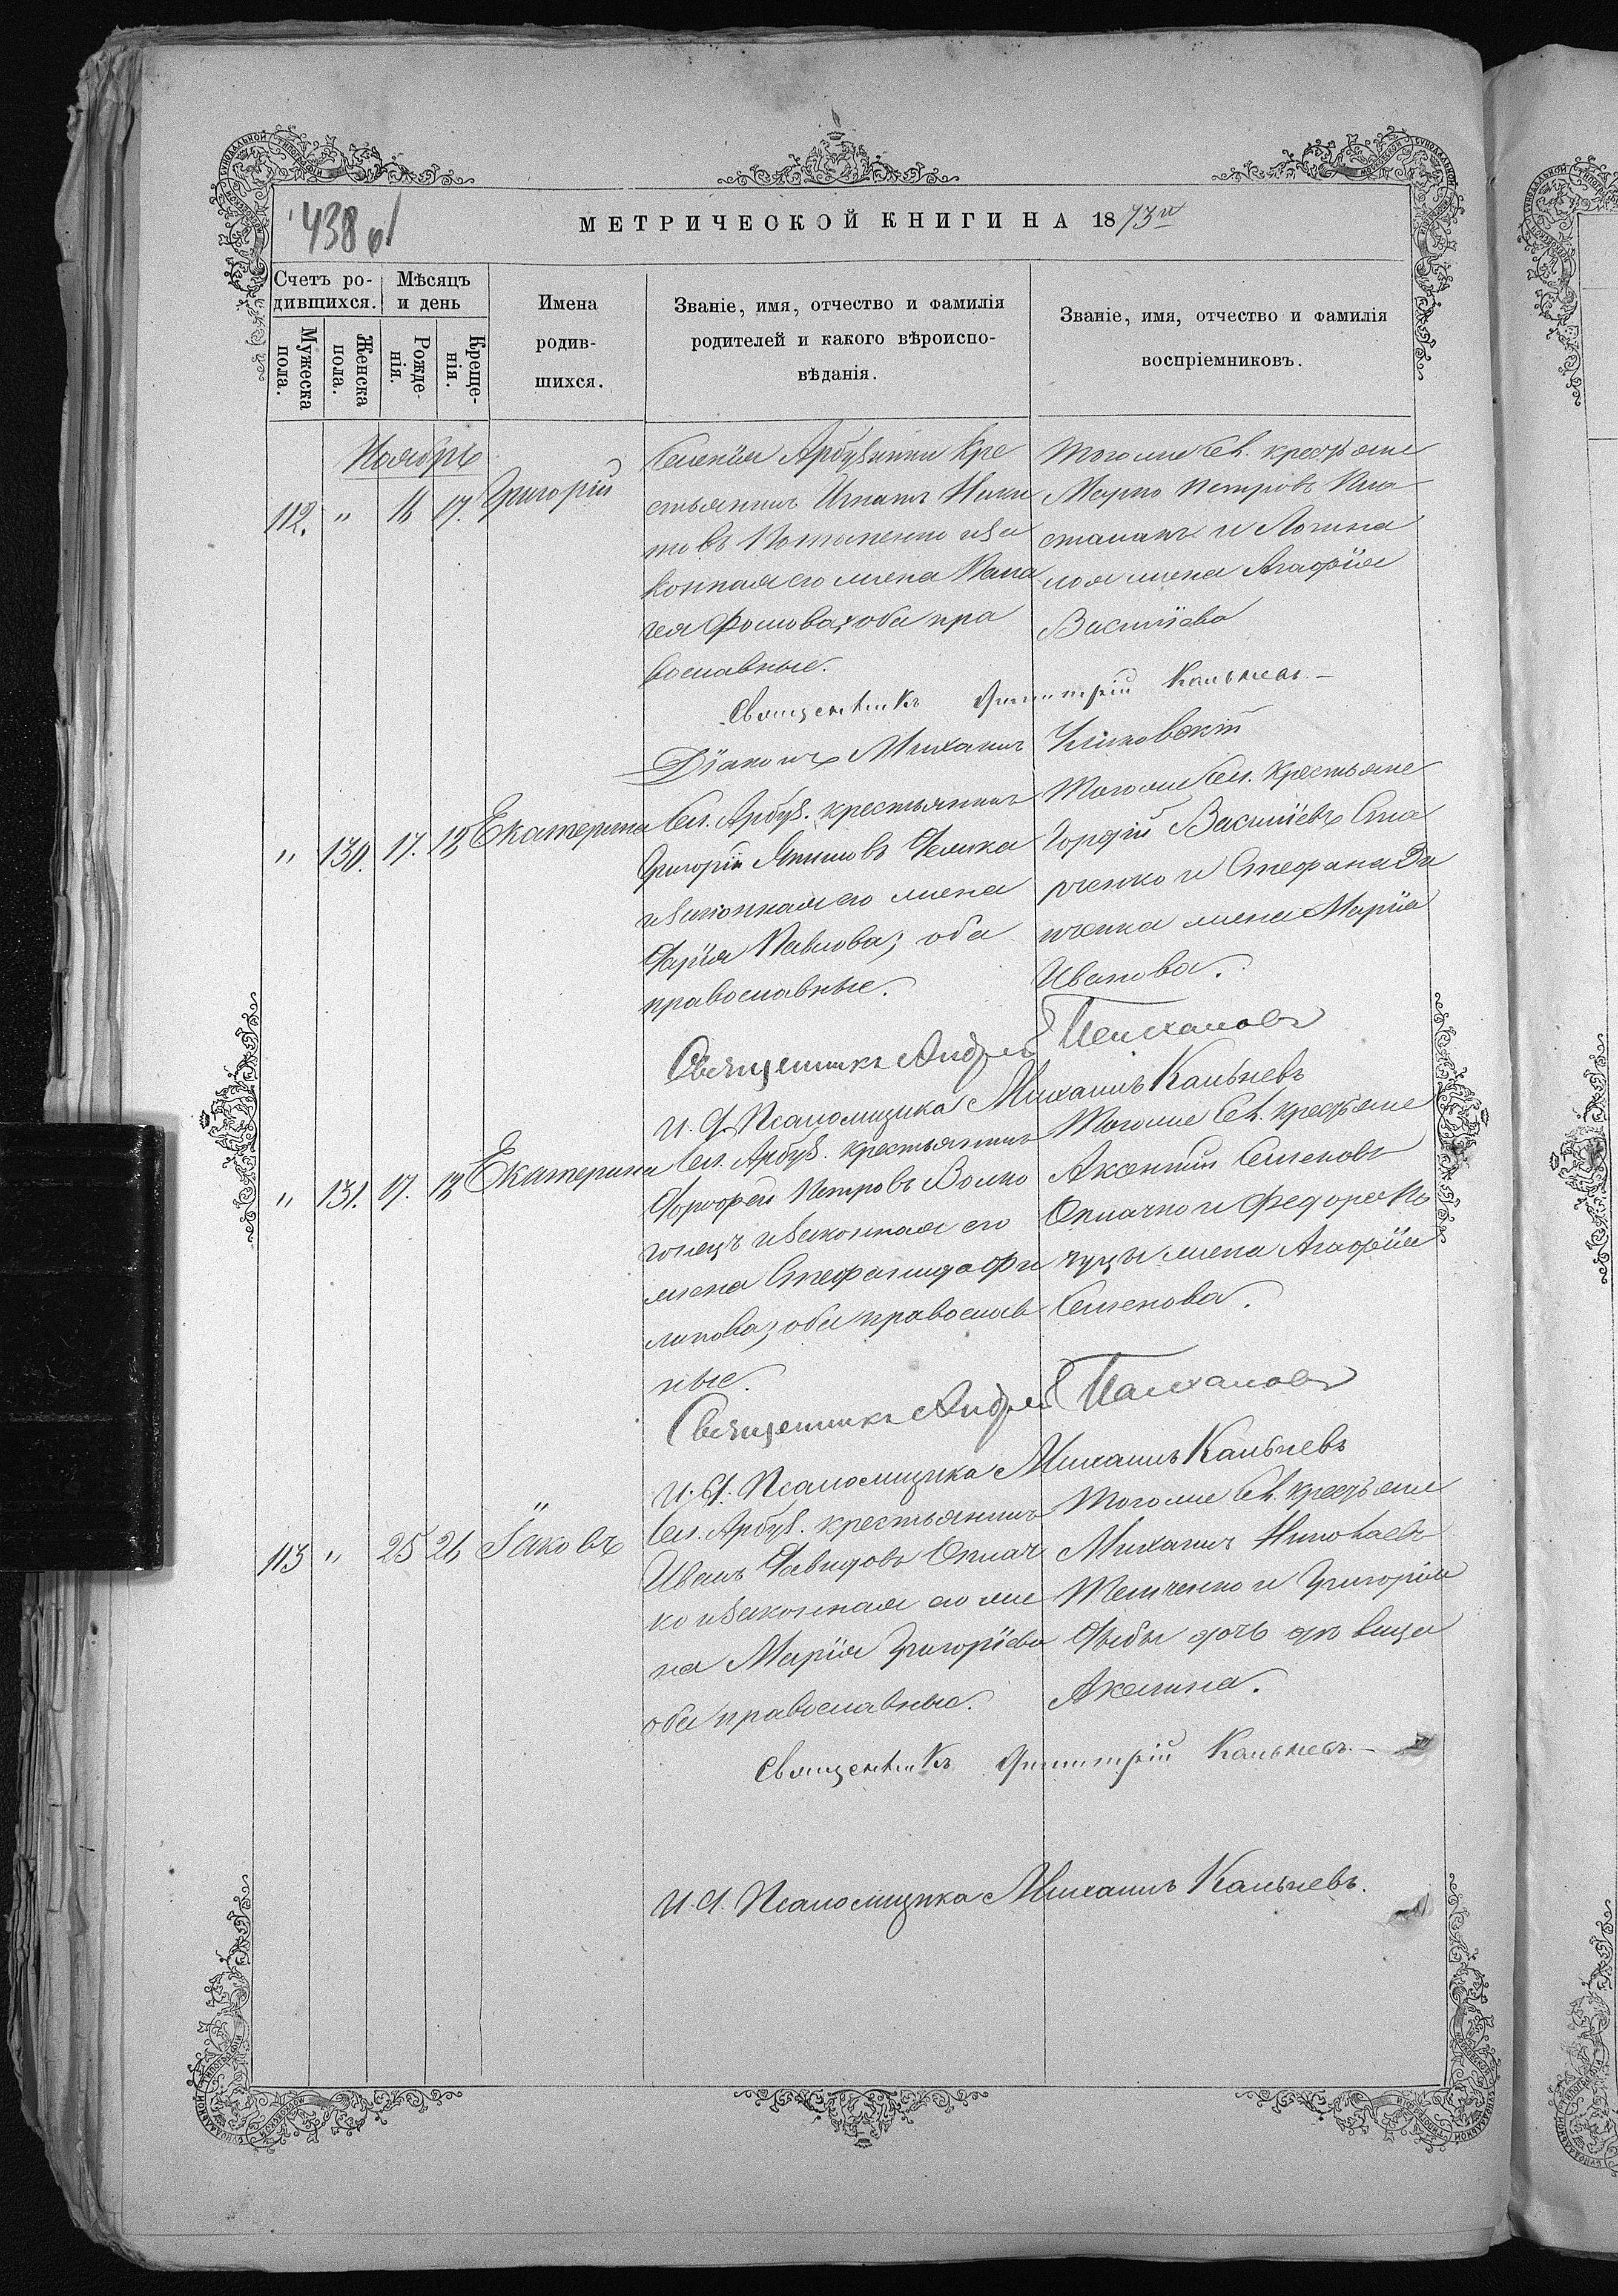 438 об
МЕТРИЧЕСКОЙ КНИГИ НА 1873й
Счетъ родившихся.
Мѣсяцъ и день
Мужеска пола.
Женска пола.
Рожденія.
Крещенія.
Имена
родив-
шихся.
Званіе, имя, отчество и фамилія
родителей и какого вѣроиспо-
вѣданія.
Званіе, имя, отчество и фамилія
воспріемниковъ.
Ноябрь
112. " 16 17. Григорій
Селенія Арбузинки Кре
стьянинъ Игнатъ Ники
товъ Потыпенко и за
конная его жена Пела
гея Фомова, оба пра
вославные.
Тогоже Сел. крестьяне
Марко Петровъ
и Логина
жена Агафія
Василіева
Священникъ Димитрій Кальневъ.-
Діаконъ Михаилъ
" 130. 17. 18 Екатерина
Сел. Арбуз. крестьянинъ
Григорій Якимовъ
и законная его жена
Дарія Павлова; оба
православные.
Тогоже Сел. Крестьяне
Гордій Василіевъ Ста
рченко и Стефана За
иченка жена Марія
Иванова.
Священникъ Андрей Пелехановъ
И. Д. Псаломщика Михаилъ Кальневъ
" 131. 17. 18 Екатерина
Сел. Арбуз. крестьянинъ
Дорофей Петровъ Волко
гонецъ и законная его
жена Стефанида Фи
липова; оба православ
ные.
Тогоже Сел. крестьяне
Аксентий Семеновъ
Спиачко и Федора
жена Агафія
Семенова.
Священникъ Андрей Пелехановъ
И. Д. Псаломщика Михаилъ Кальневъ
113 " 25 26 Іаковъ
Сел. Арбуз. крестьянинъ
Иванъ Давидовъ Спиач
ко и законная его же
на Марія Григоріева
оба православные.
Тогоже Сел. крестьяне
Михаилъ Николаевъ
и Григорія
дочь дѣвица
Акелина.
Священникъ Димитрій Кальневъ.-
И. Д. Псаломщика Михаилъ Кальневъ.